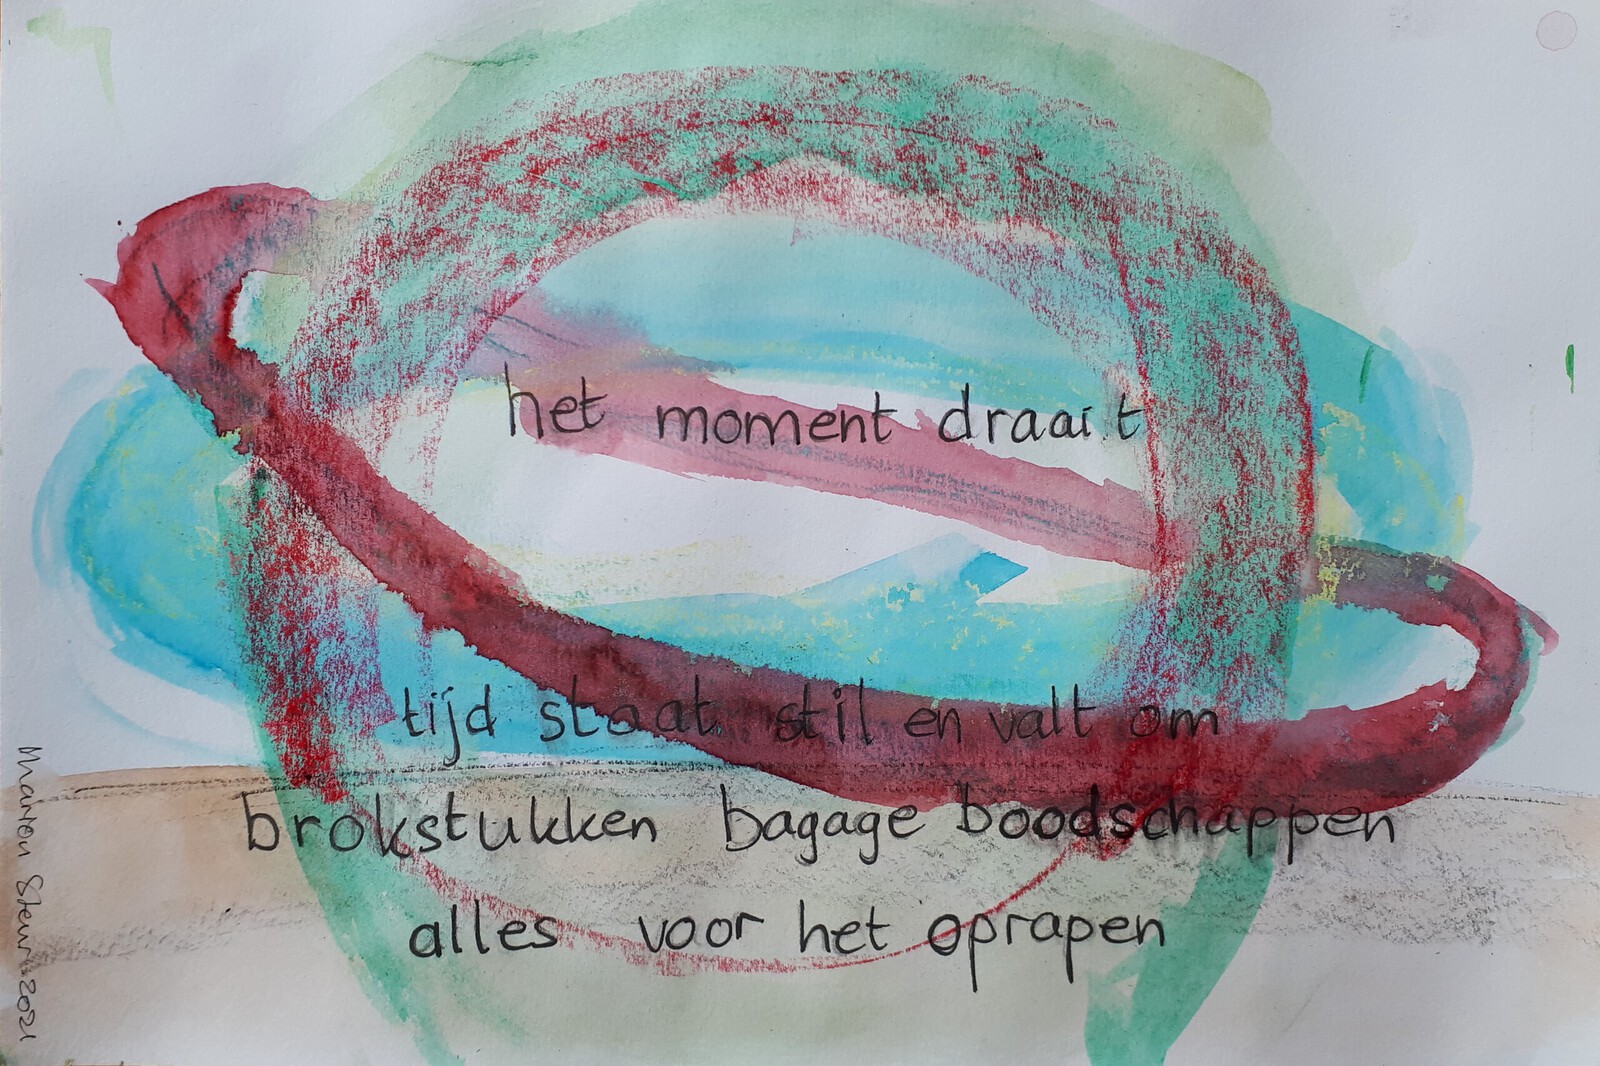 het moment draait
tijd staat stil en valt om
brokstukken bagage boodschappen
alles voor het oprapen
Marion Steur 2021